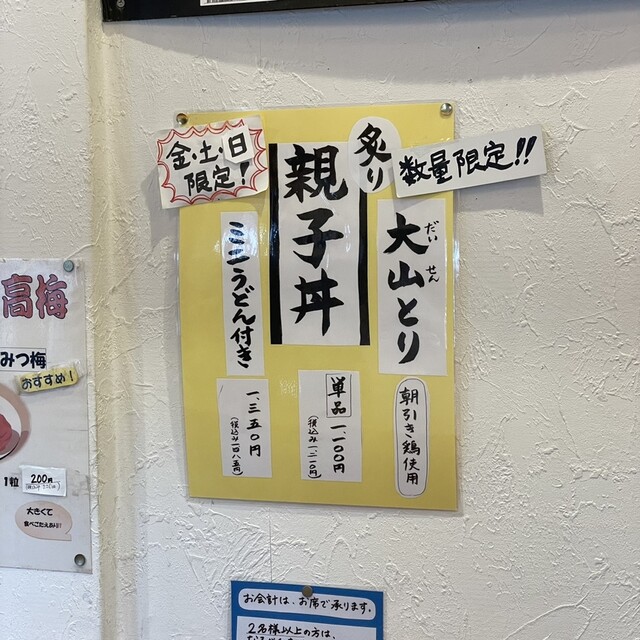 金・土・日
限定!
数量限定!!
炙り
大山とり
だいせん
親子丼
ミニうどん付き
朝引き鶏使用
単品
一、一〇〇円
(税込み一二一〇円)
一、三五〇円
(税込み一四八五円)
高梅
みつ梅
おすすめ!
1粒
200円
大きくて
食べごたえあり!!
お会計は、お席で承ります。
2名様以上の方は、